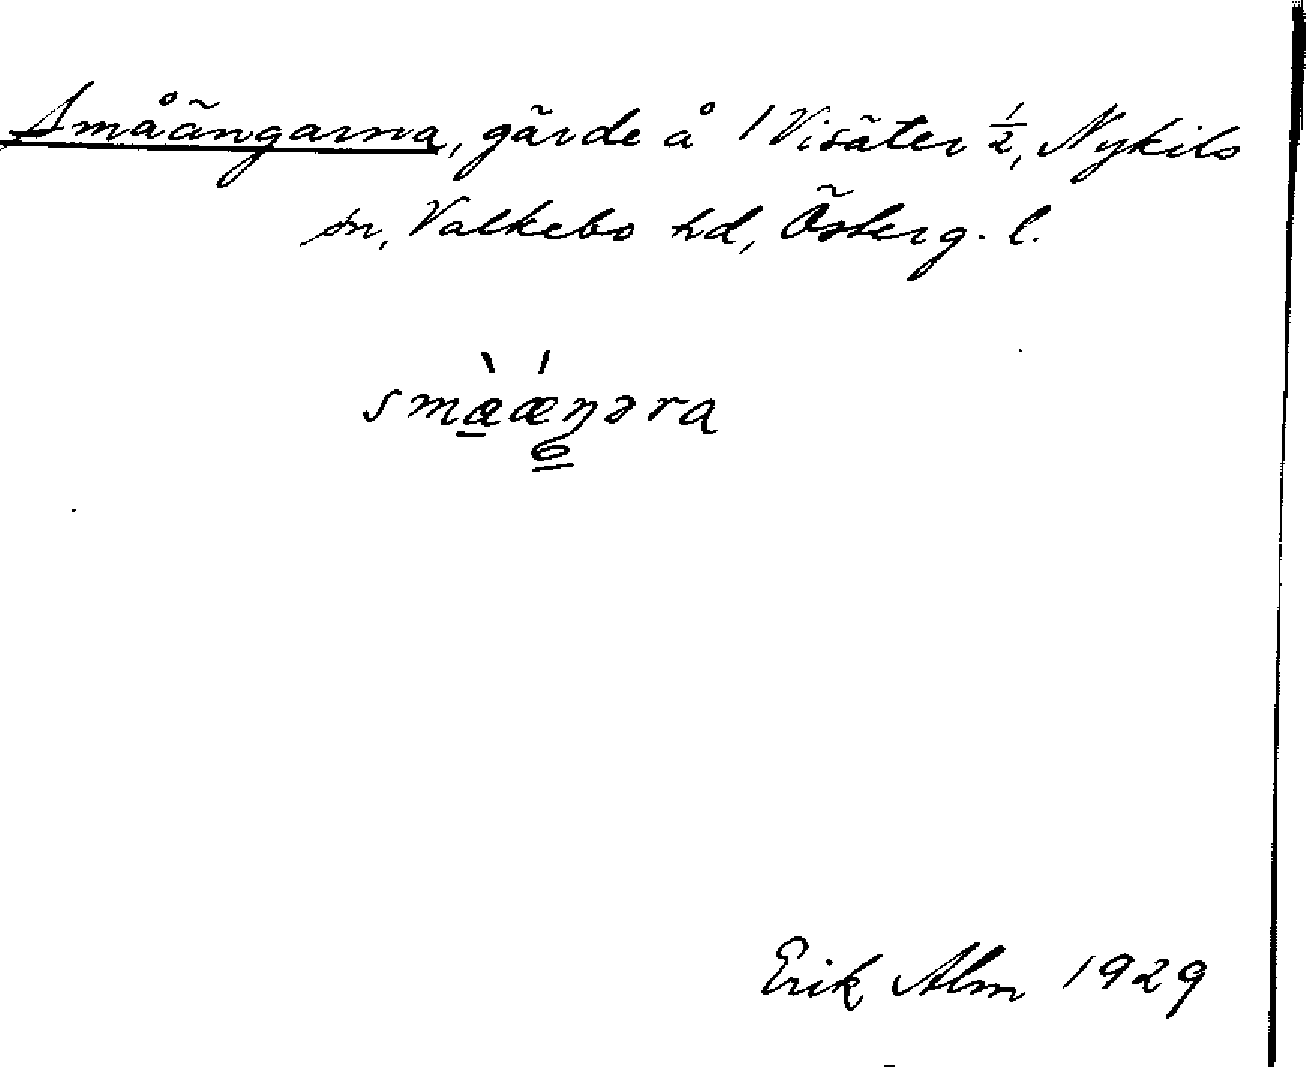 Småängarna, gärde å 1 Visäter ½, Nykils
sn, Valkebo hd, Österg. l.
smàǽŋəra
Erik Alm 1929